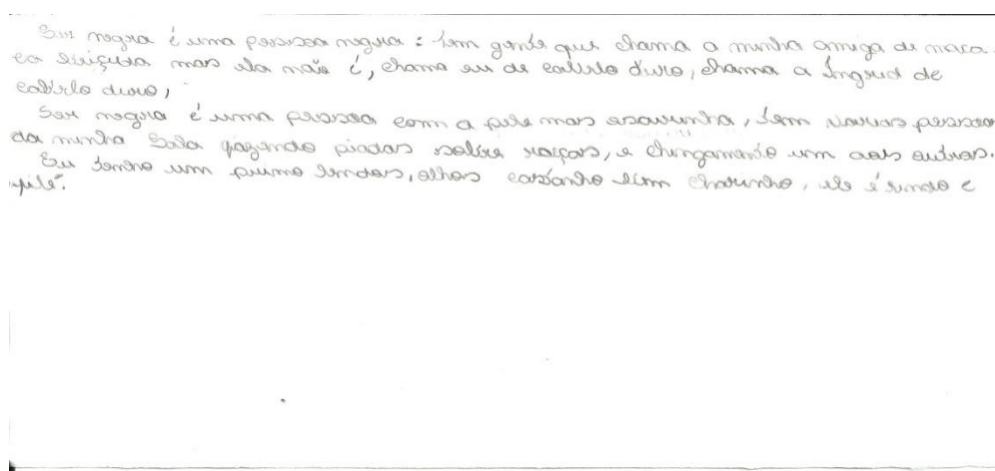 Ser negra é uma pessoa negra: tem gente que chama a minha amiga de maca.
ca beiçuda mas ela não é, chama eu de cabelo duro, chama a Ingrid de
cabelo duro,
Ser negra é uma pessoa com a pele mas escurinha, tem varias pessoa
da minha Sala fazendo piadas sobre raças, e chingamento um aos outros.
Eu tenho um primo lindos, olhos castanho bem clarinho, ele é lindo e